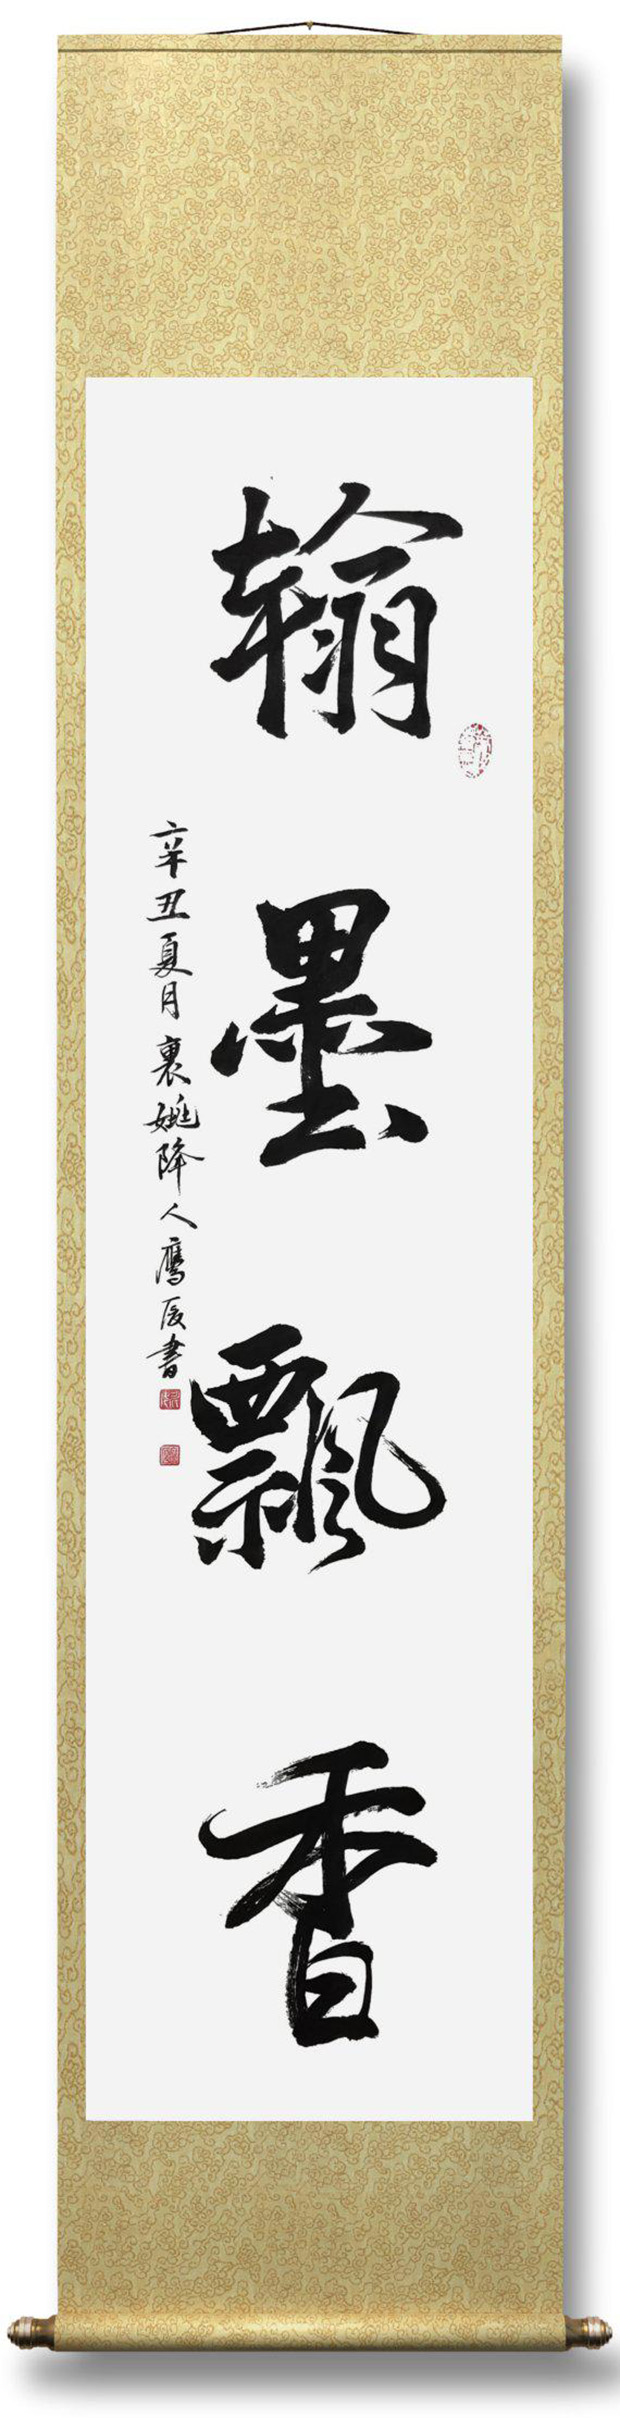 翰墨飘香
辛丑夏月裹姚降人鹰辰書